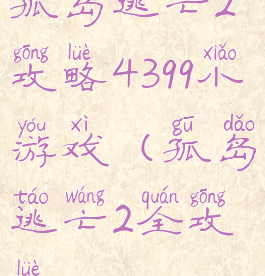 孤岛逃亡2
gōng lüè xiǎo
攻略4399小
yóu xì gū dǎo
游戏(孤岛
táo wáng quán gōng
逃亡2全攻
lüè